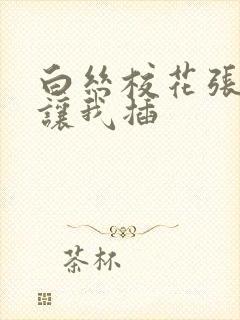 白丝校花張
讓我插
茶杯